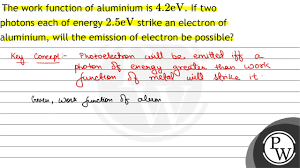 The work function of aluminium is 4.2eV. If two
photons each of energy 2.5eV strike an electron of
aluminium, will the emission of electron be possible?
Key Concept - Photoelectron will be emitted iff a
photon of energy greater than work
function of metal will strike it.
Given, work function of alum
PW